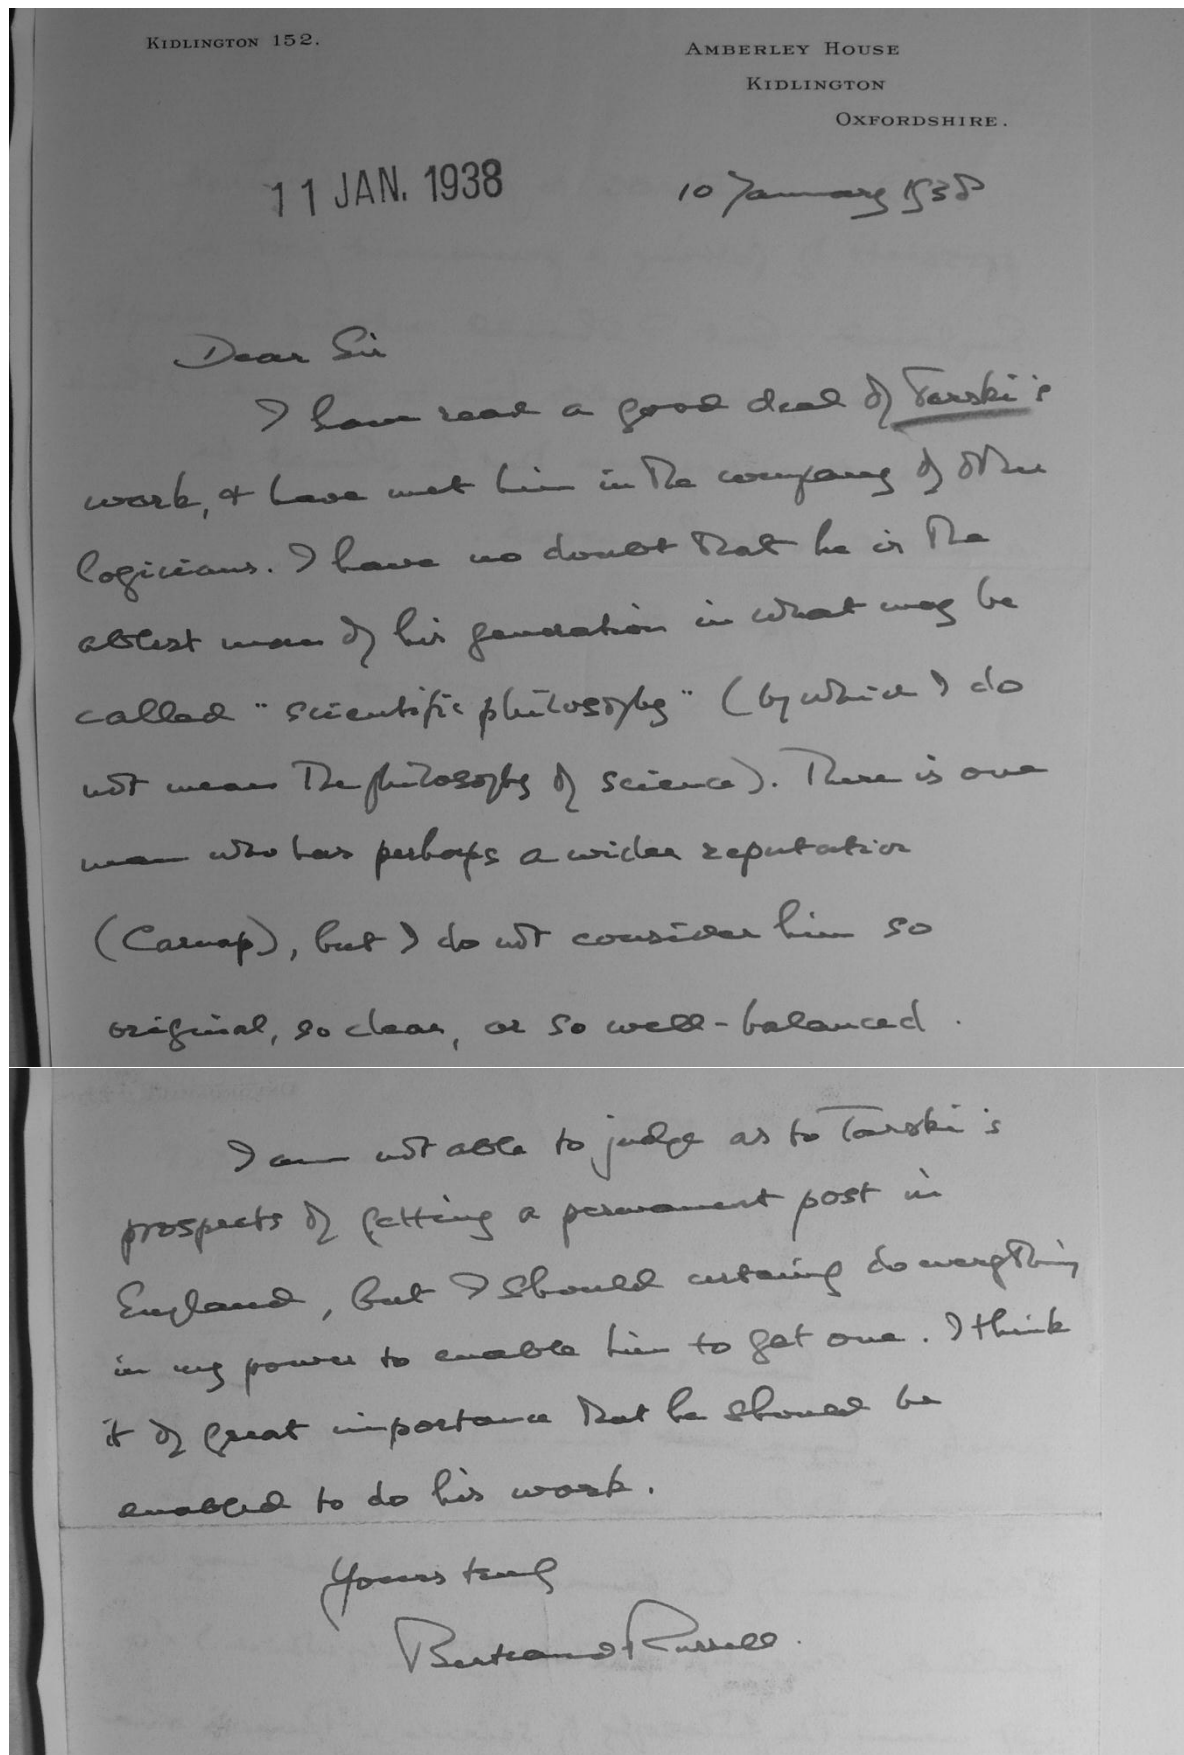 KIDLINGTON 152.
AMBERLEY HOUSE
KIDLINGTON
OXFORDSHIRE.
11 JAN. 1938
10 January 1938
Dear Sir
I have read a good deal of Tarski's
work, & have met him in the company of other
logicians. I have no doubt that he is the
ablest man of his generation in what may be
called "scientific philosophy" (by which I do
not mean the philosophy of science). There is one
man who has perhaps a wider reputation
(Carnap), but I do not consider him so
original, so clear, or so well-balanced.
I am not able to judge as to Tarski's
prospects of getting a permanent post in
England, but I should certainly do everything
in my power to enable him to get one. I think
it of great importance that he should be
enabled to do his work.
Yours truly
Bertrand Russell.